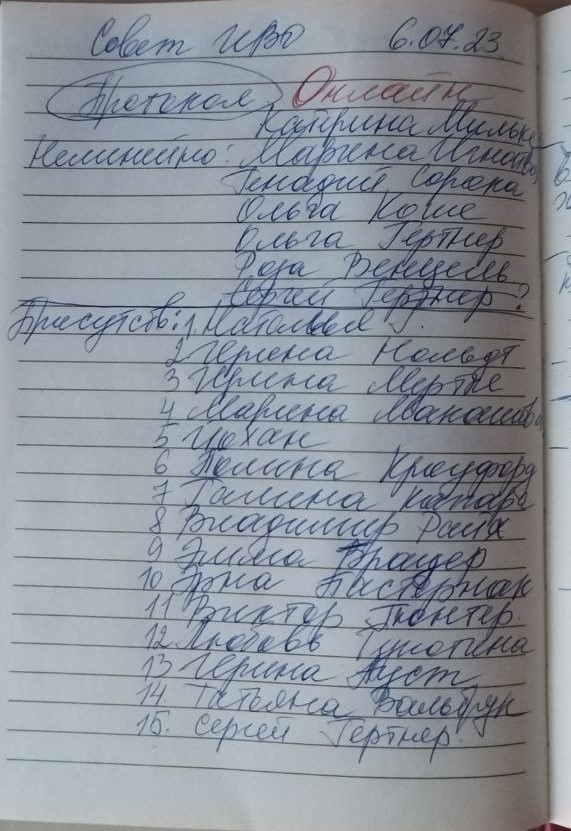 Совет ИВО 6.07.23
Протокол Онлайн
Катрина Мильке
Марина Игнатова
Генадий Сорока
Ольга Коше
Ольга Гертнер
Роза Венцель
Сергей Гертнер?
Присутств: 1. Наталья Г.
2 Ирина Нольдт
3 Ирина
4 Марина
5 Иохан
6 Полина Крауфорд
7 Галина
8 Владимир
9 Эмма Брауер
10 Эрна Пастернак
11 Виктор Гюнтер.
12 Любовь
13 Ирина Пуст
14 Татьяна Вальбрук
15. Сергей Гертнер.